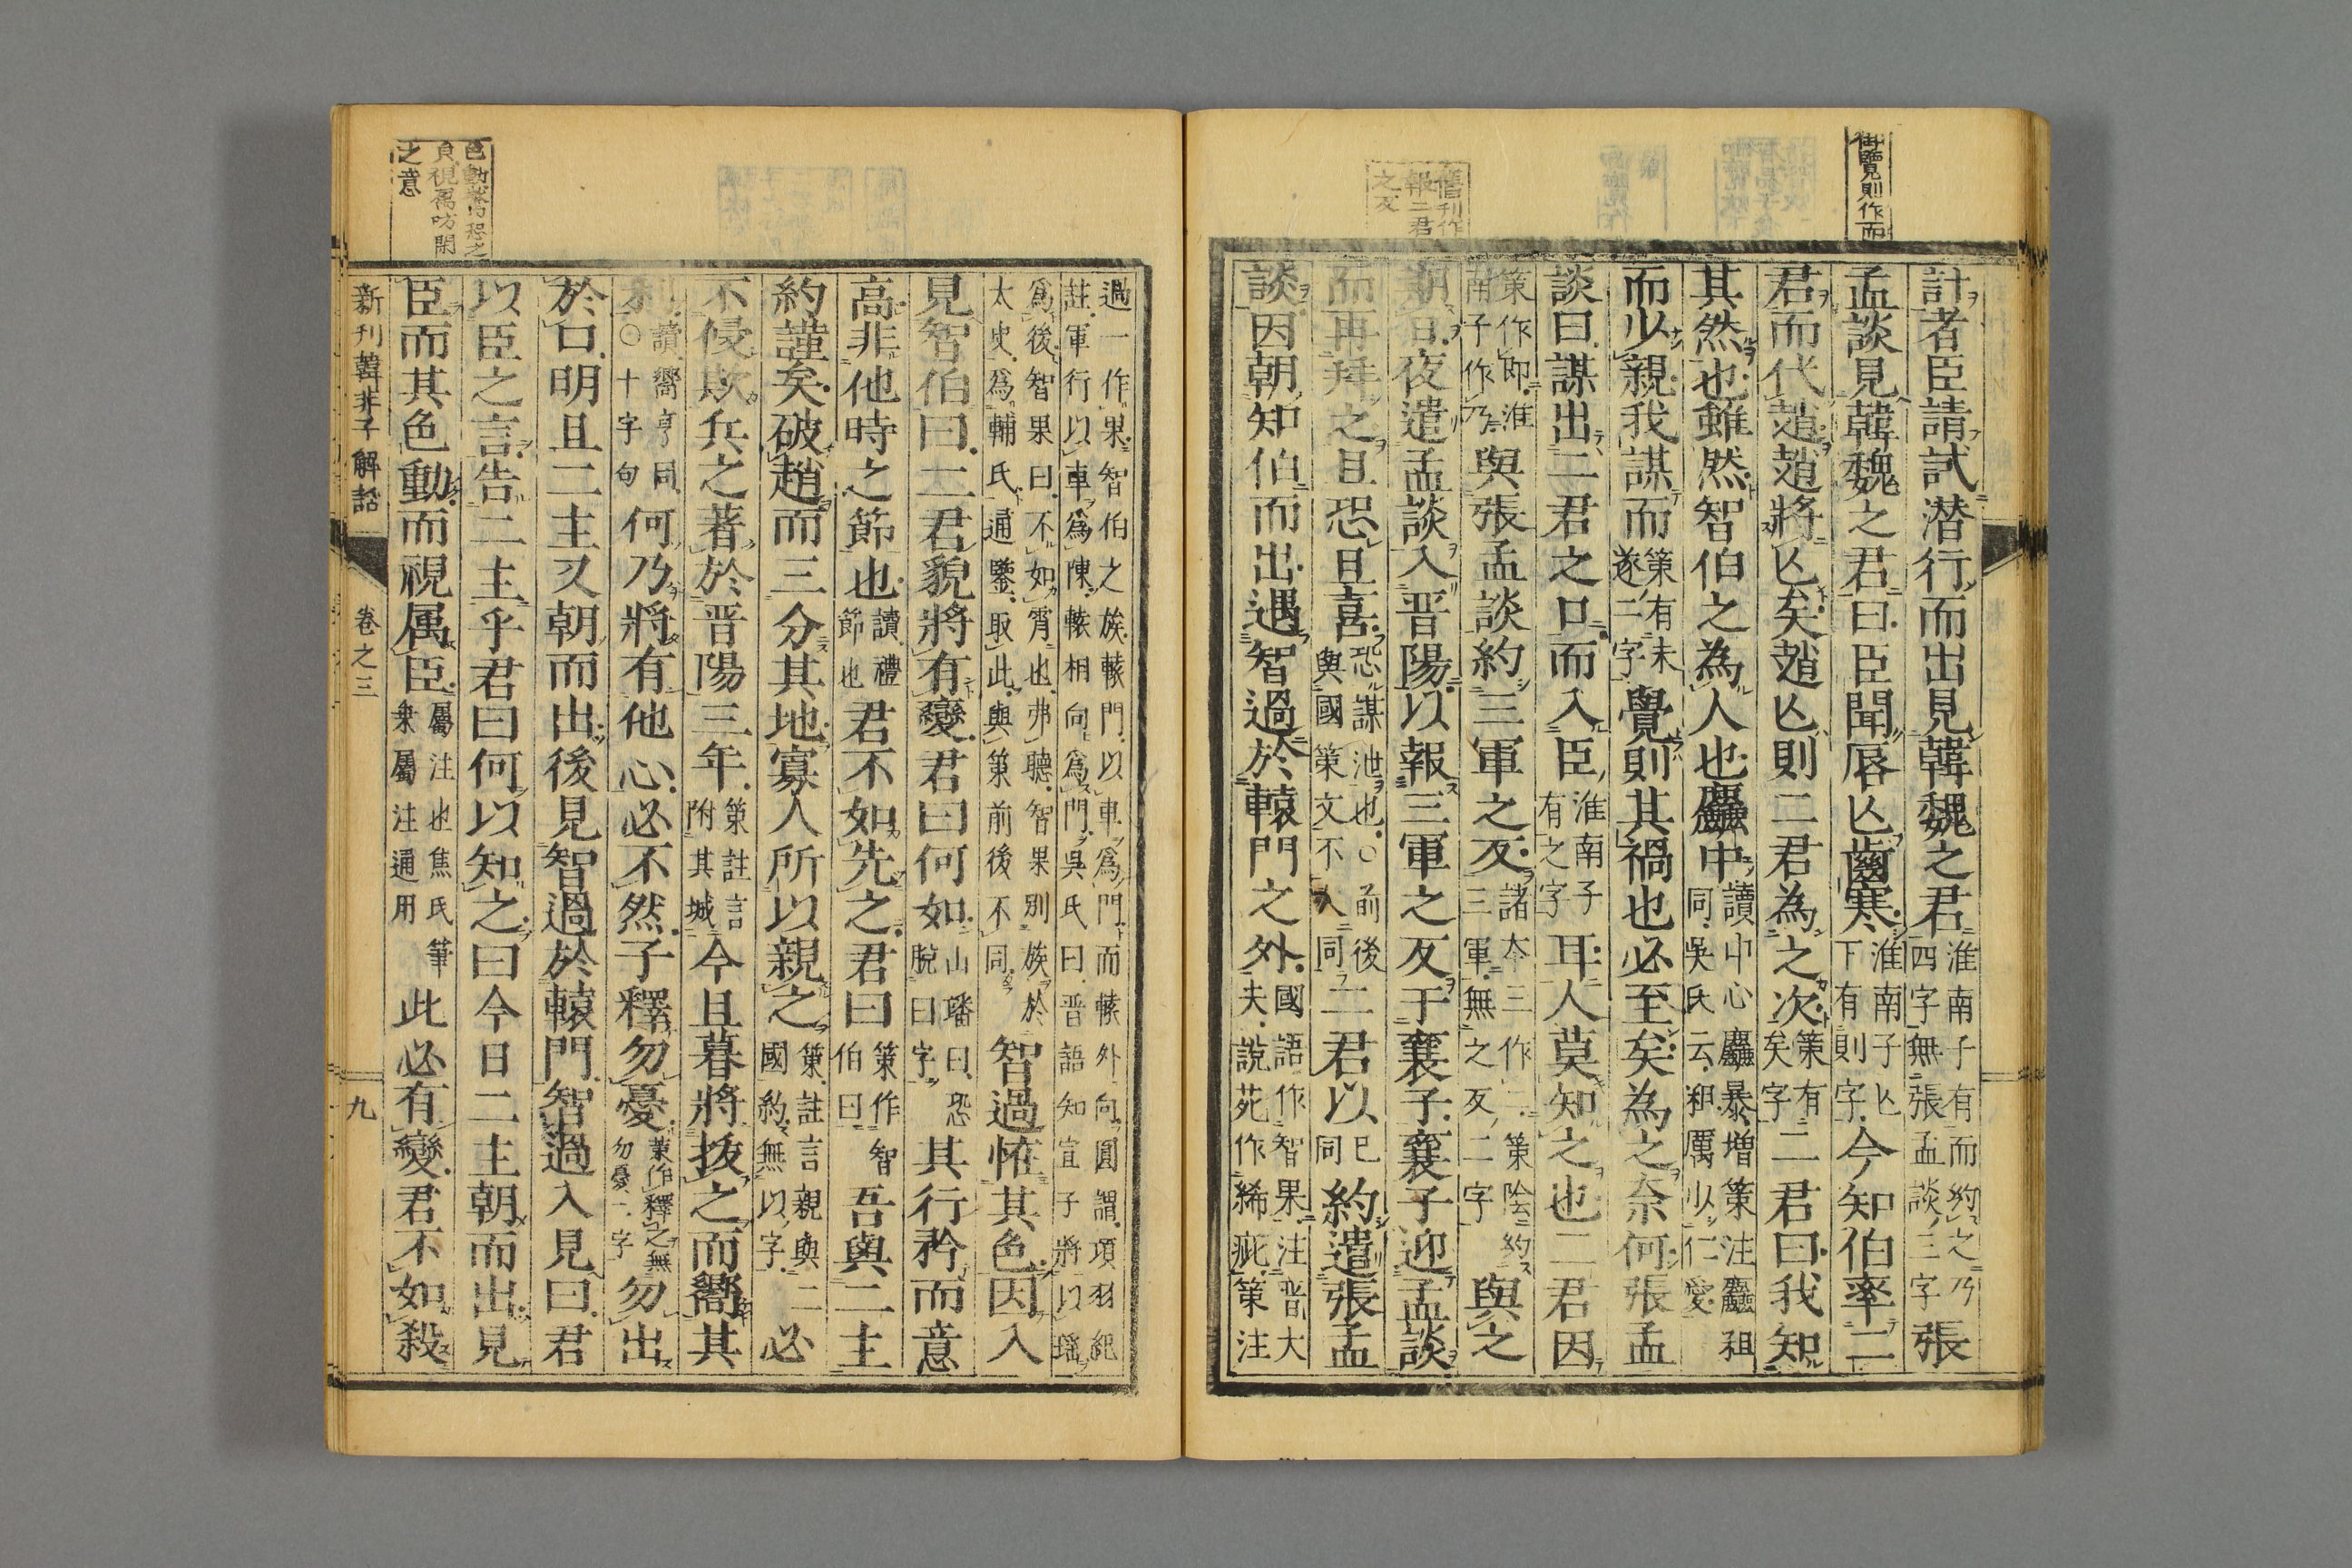 御覽則作而
計者臣請試潜行而出見韓魏之君淮南子有而約之乃四字無張孟談三字張
孟談見韓魏之君曰臣聞唇亾齒寒淮南子亾下有則字今知伯率二
君而伐趙趙將亾矣趙亾則二君為之次策有矣字二君曰我知
其然也雖然智伯之為人也麤中讀中心麤暴増策注麤祖同吳氏云粗厲少仁愛
而少親我謀而策有未遂二字覺則其禍也必至矣為之奈何張孟
談曰謀出二君之口而入臣淮南子有之字耳人莫知之也二君因
策作即淮南子作乃與張孟談約三軍之反諸本三作二策陰約三軍無之反二字與之
期日夜遣孟談入晋陽以報三軍之反于襄子襄子迎孟談
舊刊作報二君之反
而再拜之且恐且喜恐謀泄也○前後與國策文不同二君以已同約遣張孟
談因朝知伯而出遇智過於轅門之外國語作智果注晋大夫說苑作絺疵策注
過一作果智伯之族轅門以車為門而轅外向圓謂項羽紀註軍行以車為陳轅相向為門吳氏曰晋語知宣子將以瑶
為後智果曰不如宵也弗聽智果別族於太史為輔氏通鑒取此與策前後不同智過怪其色因入
見智伯曰二君貌將有變君曰何如山璠曰恐脫曰字其行矜而意
高非他時之節也讀禮節也君不如先之君曰策作智伯曰吾與二主
約謹矣破趙而三分其地寡人所以親之策註言親與二國約無以字必
不侵欺兵之著於晋陽三年策註言附其城今且暮將拔之而嚮其
利讀嚮亨同○十字句何乃將有他心必不然子釋勿憂策作釋之無勿憂二字勿出
於口明旦二主又朝而出後見智過於轅門智過入見曰君
以臣之言告二主乎君曰何以知之曰今日二主朝而出見
色動蓋恐之貞視屬防閑之意
臣而其色動而視属臣屬注也焦氏筆衆屬注通用此必有變君不如殺
新刊韓非子解詁 卷之三 九